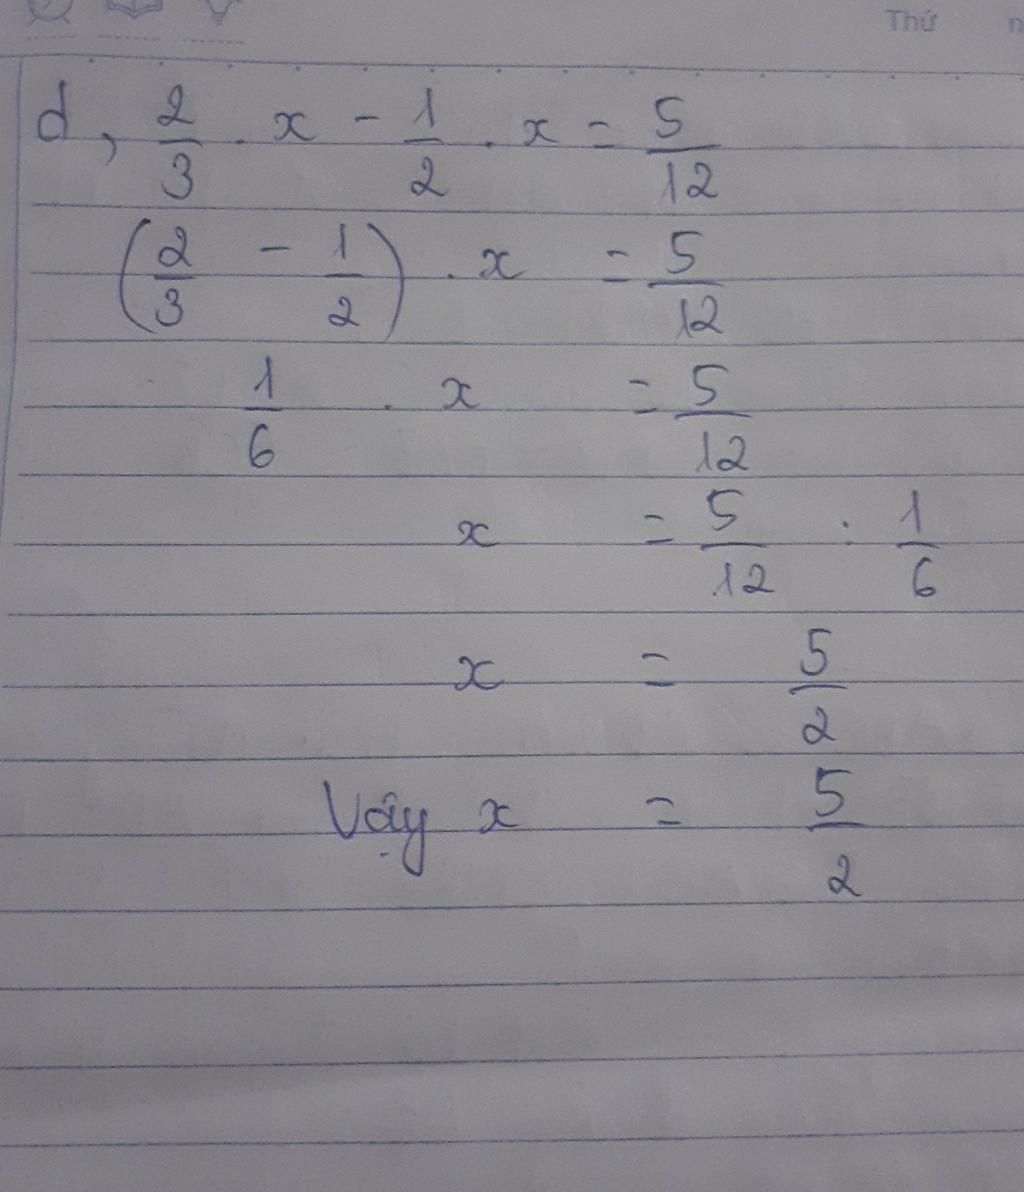 Thứ n
d, 2/3 . x - 1/2 . x = 5/12
(2/3 - 1/2) . x = 5/12
1/6 . x = 5/12
x = 5/12 : 1/6
x = 5/2
Vậy x = 5/2